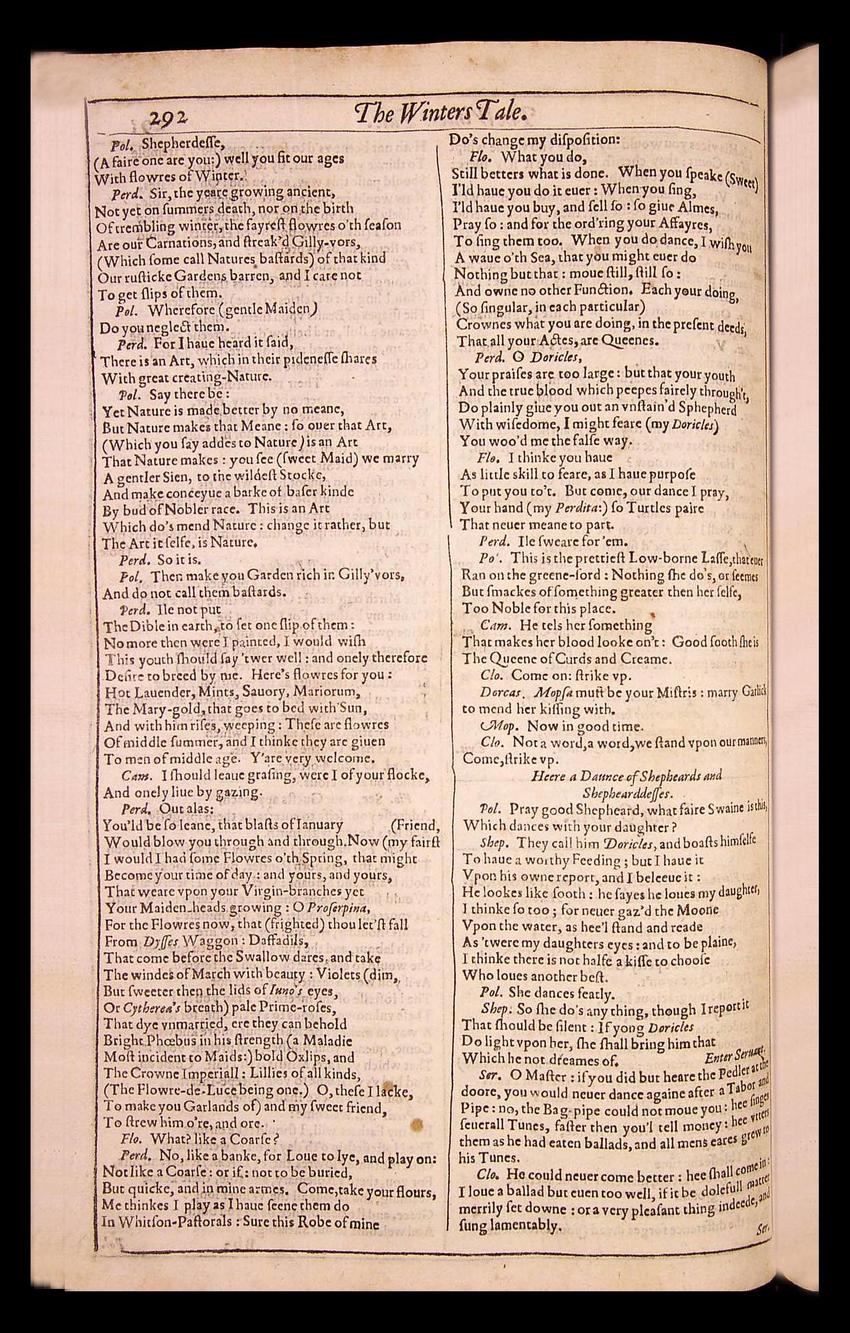 292
The Winters Tale.
Pol. Shepherdesse,
(A faire one are you:) well you fit our ages
With flowres of Winter.
Perd. Sir, the yeare growing ancient,
Not yet on summers death, nor on the birth
Of trembling winter, the fayrest flowres o'th season
Are our Carnations, and streak'd Gilly-vors,
(Which some call Natures bastards) of that kind
Our rusticke Gardens barren, and I care not
To get slips of them.
Pol. Wherefore (gentle Maiden)
Do you neglect them.
Perd. For I haue heard it said,
There is an Art, which in their pidenesse shares
With great creating-Nature.
Pol. Say there be:
Yet Nature is made better by no meane,
But Nature makes that Meane: so ouer that Art,
(Which you say addes to Nature) is an Art
That Nature makes: you see (sweet Maid) we marry
A gentler Sien, to the wildest Stocke,
And make conceyue a barke of baser kinde
By bud of Nobler race. This is an Art
Which do's mend Nature: change it rather, but
The Art it selfe, is Nature.
Perd. So it is.
Pol. Then make you Garden rich in Gilly'vors,
And do not call them bastards.
Perd. Ile not put
The Dible in earth, to set one slip of them:
No more then were I painted, I would wish
This youth should say 'twer well: and onely therefore
Desire to breed by me. Here's flowres for you:
Hot Lauender, Mints, Sauory, Mariorum,
The Mary-gold, that goes to bed with'Sun,
And with him rises, weeping: These are flowres
Of middle summer, and I thinke they are giuen
To men of middle age. Y'are very welcome.
Cam. I should leaue grasing, were I of your flocke,
And onely liue by gazing.
Perd. Out alas:
You'ld be so leane, that blasts of Ianuary (Friend,
Would blow you through and through. Now (my fairst
I would I had some Flowres o'th Spring, that might
Become your time of day: and yours, and yours,
That weare vpon your Virgin-branches yet
Your Maiden-heads growing: O Proserpina,
For the Flowres now, that (frighted) thou let'st fall
From Dysses Waggon: Daffadils,
That come before the Swallow dares, and take
The windes of March with beauty: Violets (dim,
But sweeter then the lids of Iuno's eyes,
Or Cytherea's breath) pale Prime-roses,
That dye vnmarried, ere they can behold
Bright Phœbus in his strength (a Maladie
Most incident to Maids:) bold Oxlips, and
The Crowne Imperiall: Lillies of all kinds,
(The Flowre-de-Luce being one.) O, these I lacke,
To make you Garlands of) and my sweet friend,
To strew him o're, and ore.
Flo. What? like a Coarse?
Perd. No, like a banke, for Loue to lye, and play on:
Not like a Coarse: or if: not to be buried,
But quicke, and in mine armes. Come, take your flours,
Me thinkes I play as I haue seene them do
In Whitson-Pastorals: Sure this Robe of mine
Do's change my disposition:
Flo. What you do,
Still betters what is done. When you speake (Sweet)
I'ld haue you do it euer: When you sing,
I'ld haue you buy, and sell so: so giue Almes,
Pray so: and for the ord'ring your Affayres,
To sing them too. When you do dance, I wish you
A waue o'th Sea, that you might euer do
Nothing but that: moue still, still so:
And owne no other Function. Each your doing,
(So singular, in each particular)
Crownes what you are doing, in the present deeds,
That all your Actes, are Queenes.
Perd. O Doricles,
Your praises are too large: but that your youth
And the true blood which peepes fairely through't,
Do plainly giue you out an vnstain'd Sphepherd
With wisedome, I might feare (my Doricles)
You woo'd me the false way.
Flo. I thinke you haue
As little skill to feare, as I haue purpose
To put you to't. But come, our dance I pray,
Your hand (my Perdita:) so Turtles paire
That neuer meane to part.
Perd. Ile sweare for 'em.
Po'. This is the prettiest Low-borne Lasse, that euer
Ran on the greene-sord: Nothing she do's, or seemes
But smackes of something greater then her selfe,
Too Noble for this place.
Cam. He tels her something
That makes her blood looke on't: Good sooth she is
The Queene of Curds and Creame.
Clo. Come on: strike vp.
Dorcas. Mopsa must be your Mistris: marry Garlick
to mend her kissing with.
Mop. Now in good time.
Clo. Not a word, a word, we stand vpon our manners,
Come, strike vp.
Heere a Daunce of Shepheards and
Shephearddesses.
Pol. Pray good Shepheard, what faire Swaine is this,
Which dances with your daughter?
Shep. They call him Doricles, and boasts himselfe
To haue a worthy Feeding; but I haue it
Vpon his owne report, and I beleeue it:
He lookes like sooth: he sayes he loues my daughter,
I thinke so too; for neuer gaz'd the Moone
Vpon the water, as hee'l stand and reade
As 'twere my daughters eyes: and to be plaine,
I thinke there is not halfe a kisse to choose
Who loues another best.
Pol. She dances featly.
Shep. So she do's any thing, though I report it
That should be silent: If yong Doricles
Do light vpon her, she shall bring him that
Which he not dreames of. Enter Seruant.
Ser. O Master: if you did but heare the Pedler at the
doore, you would neuer dance againe after a Tabor and
Pipe: no, the Bag-pipe could not moue you: hee singes
seuerall Tunes, faster then you'l tell money: hee vtters
them as he had eaten ballads, and all mens eares grew to
his Tunes.
Clo. He could neuer come better: hee shall come in:
I loue a ballad but euen too well, if it be dolefull matter
merrily set downe: or a very pleasant thing indeede, and
sung lamentably.
Ser.